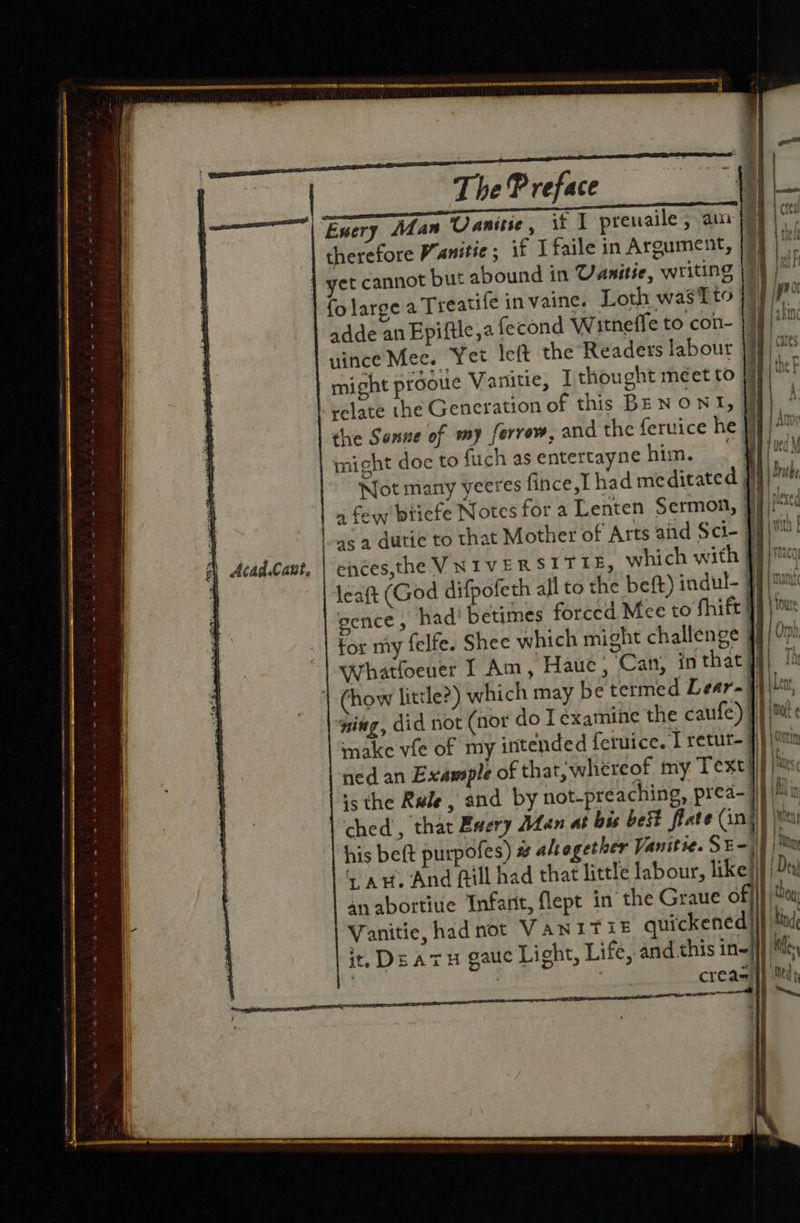 The Preface
Euery Man Vanitie, if I preuaile; am
therefore Vanitie; if I faile in Argument,
yet cannot but abound in Vanitie, writing
ſo large a Treatiſe in vaine. Loth was I to
adde an Epiſtle, a ſecond Witneſſe to con-
uince Mee. Yet left the Readers labour
might prooue Vanitie, I thought meet to
relate the Generation of this BENONI,
the Sonne of my ſorrow, and the ſeruice he
might doe to ſuch as entertayne him.
Not many yeeres ſince, I had meditated
a few briefe Notes for a Lenten Sermon,
as a dutie to that Mother of Arts and Sci-
Acad.Cant.
ences, the VNIVERSITIE, which with
leaſt (God diſpoſeth all to the beſt) indul-
gence, had betimes forced Mee to ſhift
for my ſelfe. Shee which might challenge
Whatſoeuer I Am, Haue, Can, in that
(how little?) which may be termed Lear-
ning, did not (nor do I examine the cauſe)
make vſe of my intended ſeruice. I retur-
ned an Example of that, whereof my Text
is the Rule, and by not-preaching, prea-
ched, that Euery Man at his beſt ſtate (in
his beſt purpoſes) is altogether Vanitie. SE-
LAH. And ſtill had that little labour, like
an abortiue Infant, ſlept in the Graue of
Vanitie, had not VANITIE quickened
it. DEATH gaue Light, Life, and this in-
crea-